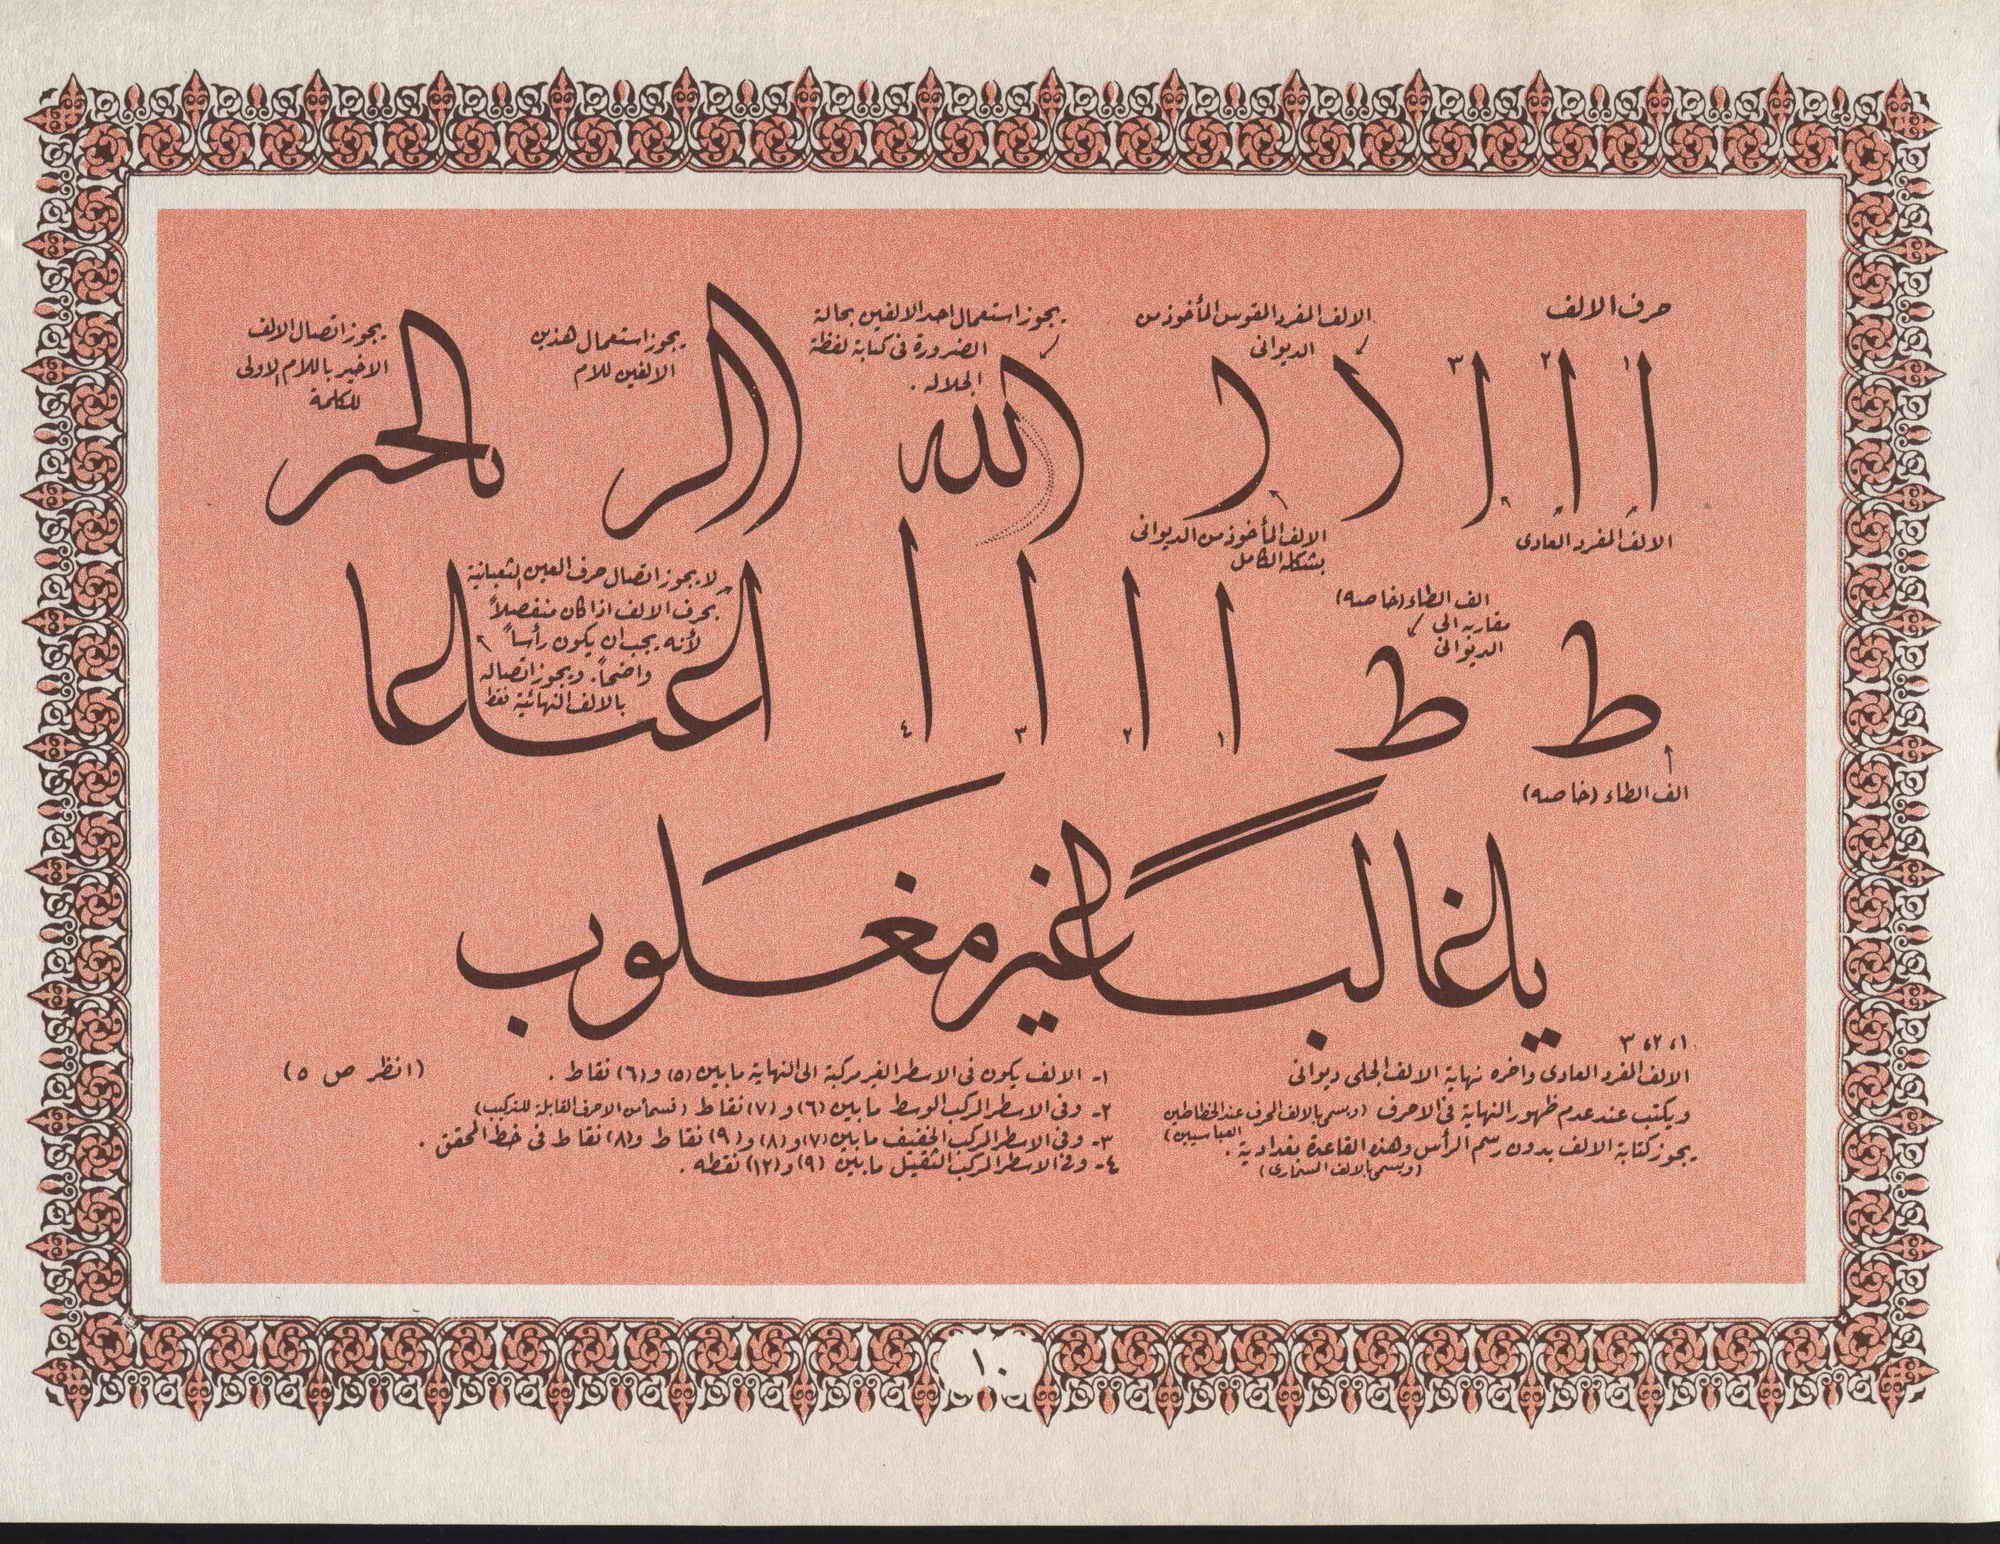 حرف الالف
١ ٢ ٣
ا ا ا
الالف المفرد العادى
الالف المفرد المقوس المأخوذ من
الديوانى
الالف المأخوذ من الديوانى
بشكله الكامل
يجوز استعمال احد الالفين بحالة
الضرورة فى كتابة لفظة
الجلاله .
الله
يجوز استعمال هذين
الالفين للام
يجوز اتصال الالف
الاخير باللام الاولى
للكلمة
ط ط
الف الطاء (خاصه)
الف الطاء (خاصه)
مقاربه الى
الديوانى
ا ا ا ا
١ ٢ ٣ ٤
لا يجوز اتصال حرف العين الثعبانية
بحرف الالف اذا كان منفصلاً
لأنه يجب ان يكون رأساً
واضحاً. ويجوز اتصاله
بالالف النهائية فقط
يا غالبا غير مغلوب
١، ٢، ٣
الالف المفرد العادى واخره نهاية الالف الجلى ديوانى
ويكتب عند عدم ظهور النهاية فى الاحرف (ويسمى بالالف المحرف عند الخطاطين
العباسيين)
يجوز كتابة الالف بدون رسم الرأس وهذه القاعدة بغدادية .
١- الالف يكون فى الاسطر الغير مركبة الى النهاية مابين (٥) و (٦) نقاط . (انظر ص ٥)
٢- وفى الاسطر المركب الوسط مابين (٦) و (٧) نقاط (قسم من الاحرف القابلة للتركيب)
٣- وفى الاسطر المركب الخفيف مابين (٧) و (٨) و (٩) نقاط و (٨) نقاط فى خط المحقق .
٤- وفى الاسطر المركب الثقيل مابين (٩) و (١٢) نقطه .
١٠